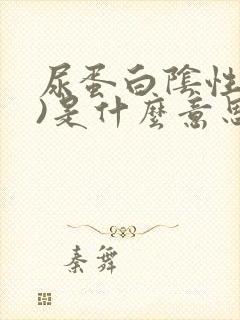 尿蛋白陰性
)是什麼意思
秦舞